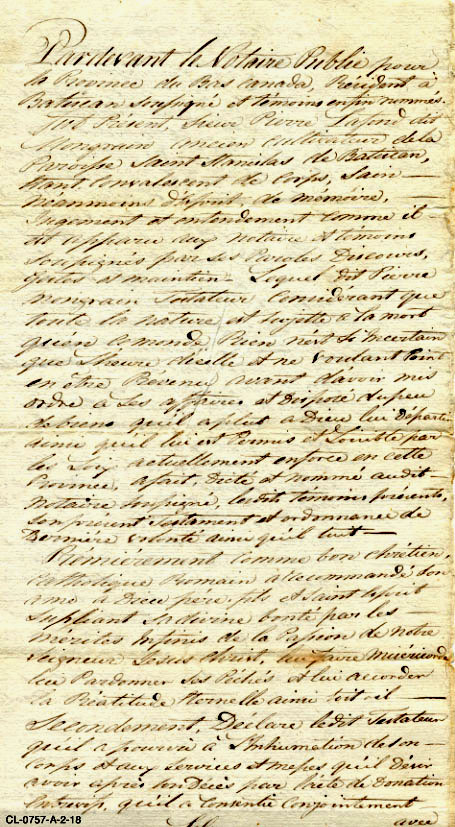 Pardevant le Notaire Public pour
la Province du Bas Canada, Résident à
Batiscan soussigné et témoins enfin nommés.
fut Présent, Sieur Pierre Lafond dit
Mongrain ancien cultivateur de la
Paroisse Saint Stanislas de Batiscan,
étant Convalescent de Corps, Sain —
Néanmoins d'esprit de mémoire,
Jugement et entendement comme il
est apparu aux Notaire et témoins
soussignés par ses Paroles Discours,
gestes et maintien — Lequel dit Pierre
Mongrain Testateur Considérant que
toute la nature est sujette à la mort
qu'en ce monde Rien n'est Si Incertain
que l'heure d'icelle et ne voulant Point
en être Prevenu avant d'avoir mis
ordre à Ses affaires et disposé du peu
de biens qu'il a plut à Dieu lui Départir
ainsi qu'il lui est Permis et Loisible par
les Loix actuellement en force en cette
Province, a fait, dicté et nommé audit —
Notaire soussigné, lesdit temoins présents,
son présent Testament et ordonnance de
Dernière volonté ainsi qu'il suit —
Prémièrement comme bon Chrétien,
Catholique Romain a recommandé Son
ame à Dieu père, fils et Saint esprit
Supliant Sa divine bonté par les —
Mérites infinis de la Passion de notre
Seigneur Jesus Christ, lui faire Miséricorde
lui Pardonner Ses Péchés et lui accorder
la Béatitude Eternelle ainsi soit-il —
Secondement, Déclare ledit Testateur
qu'il a pourvu à L'Inhumation de son —
Corps et aux Services et messes qu'il Désire
avoir après son Décès par l'acte de Donation
qu'il a Consentie Conjointement
avec
CL-0757-A-2-18